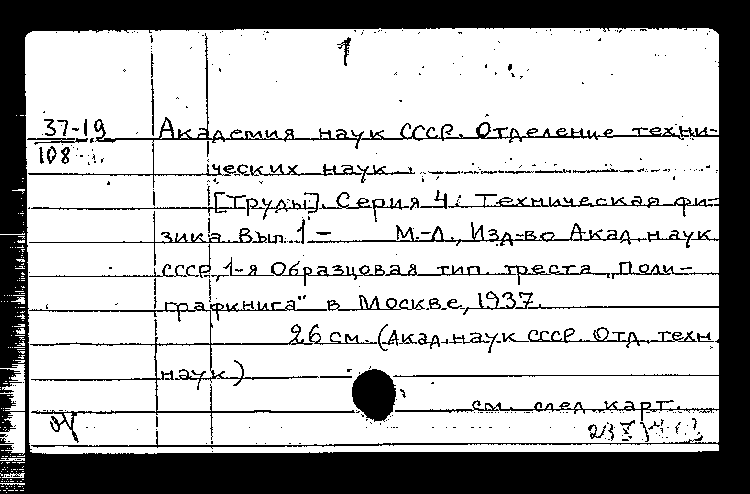 1
37-19
108
Академия наук СССР. Отделение техни-
ческих наук.
[Труды]. Серия 4: Техническая фи-
зика. Вып. 1 - М.-Л., Изд-во Акад. наук
СССР, 1-я Образцовая тип. треста „Поли-
графкнига" в Москве, 1937.
26 см. (Акад. наук СССР. Отд. техн.
наук)
см. след. карт.